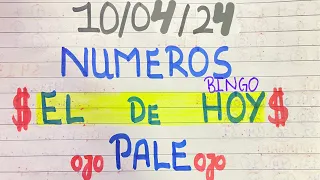 10/04/24
NUMEROS
BINGO
$EL DE HOY$
ojo PALE ojo